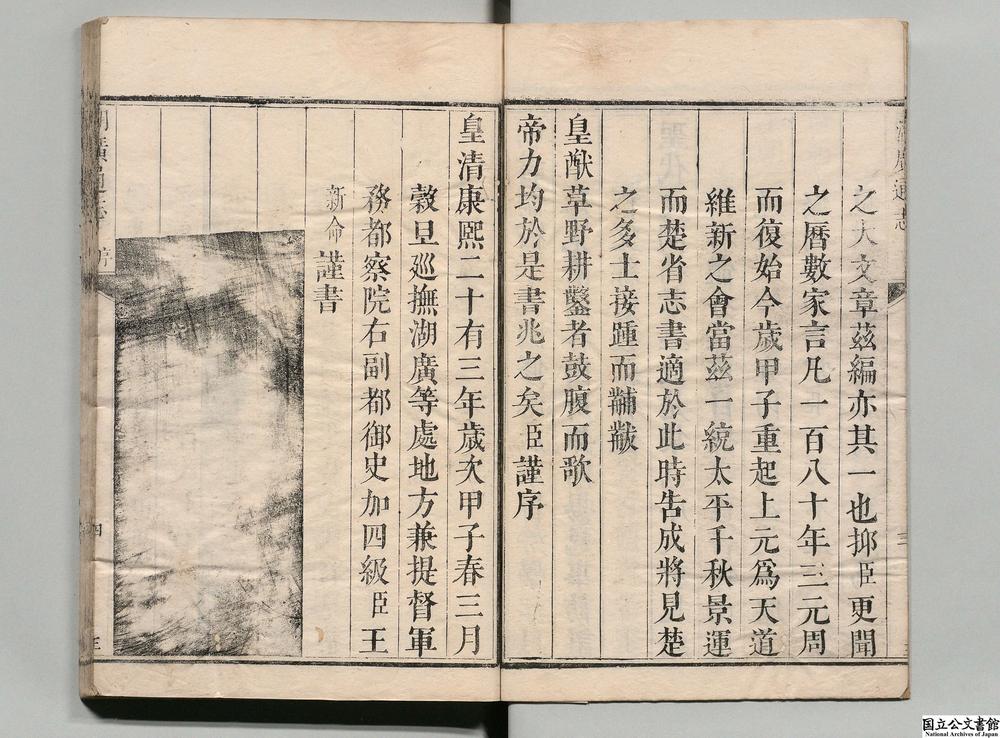 之大文章茲編亦其一也抑臣更聞
之曆數家言凡一百八十年三元周
而復始今歲甲子重起上元爲天道
維新之會當茲一統太平千秋景運
而楚省志書適於此時告成將見楚
之多士接踵而黼黻
皇猷草野耕鑿者鼓腹而歌
帝力均於是書兆之矣臣謹序
皇清康熙二十有三年歲次甲子春三月
穀旦廵撫湖廣等處地方兼提督軍
務都察院右副都御史加四級臣王
新命謹書
湖廣通志 序
四
国立公文書館
National Archives of Japan